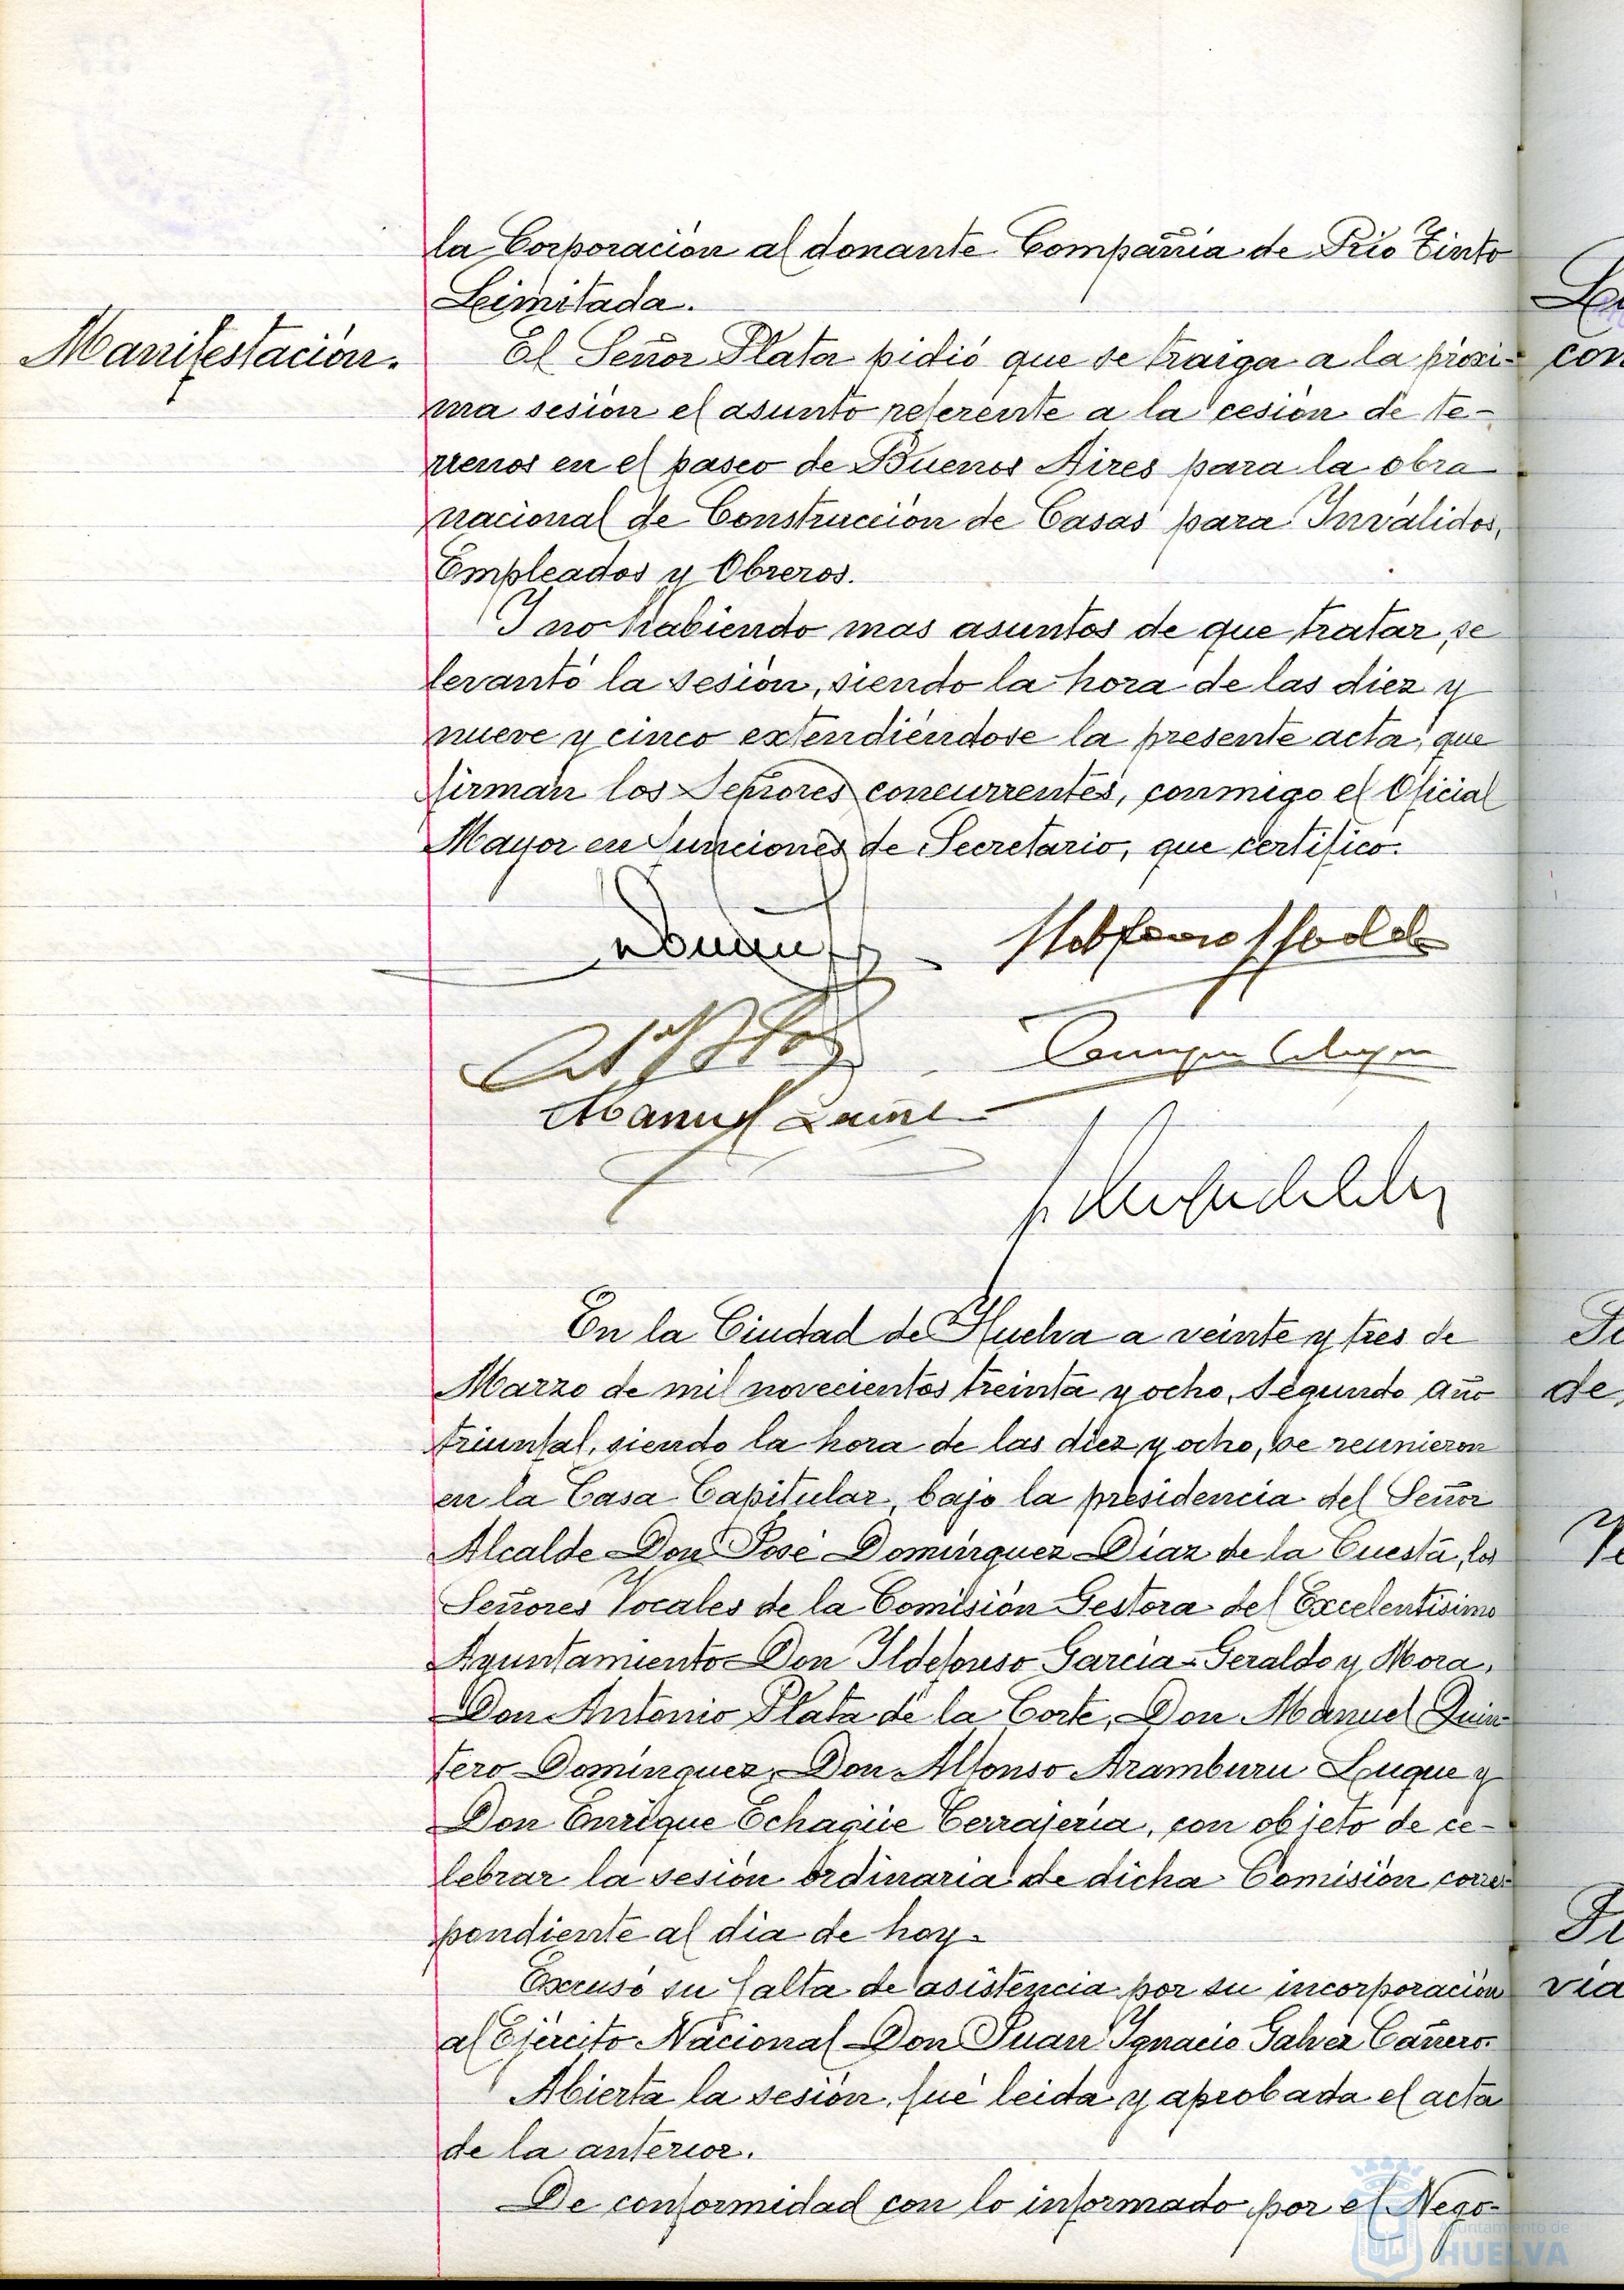 la Corporación al donante Compañia de Rio Tinto
Limitada.
Manifestación.
El Señor Plata pidió que se traiga a la proxi-
ma sesión el asunto referente a la cesión de te-
rrenos en el paseo de Buenos Aires para la obra
nacional de Construcción de Casas para Inválidos,
Empleados y Obreros.
Y no habiendo mas asuntos de que tratar, se
levantó la sesión, siendo la hora de las diez y
nueve y cinco extendiéndose la presente acta, que
firman los Señores concurrentes, conmigo el Oficial
Mayor en funciones de Secretario, que certifico.
Manuel
En la Ciudad de Huelva a veinte y tres de
Marzo de mil novecientos treinta y ocho, Segundo año
triunfal, siendo la hora de las diez y ocho, se reunieron
en la Casa Capitular, bajo la presidencia del Señor
Alcalde Don José Domínguez Díaz de la Cuesta, los
Señores Vocales de la Comisión Gestora del Excelentísimo
Ayuntamiento Don Ildefonso García-Geraldo y Mora,
Don Antonio Plata de la Corte, Don Manuel Quin-
tero Domínguez, Don Alfonso Aramburu Luque y
Don Enrique Echagüe Cerrajería, con objeto de ce-
lebrar la sesión ordinaria de dicha Comisión corres-
pondiente al dia de hoy.
Excusó su falta de asistencia por su incorporación
al Ejército Nacional Don Juan Ignacio Galvez Cañero.
Abierta la sesión, fué leida y aprobada el acta
de la anterior.
De conformidad con lo informado por el Nego-
Ayuntamiento de
HUELVA
con
de
via